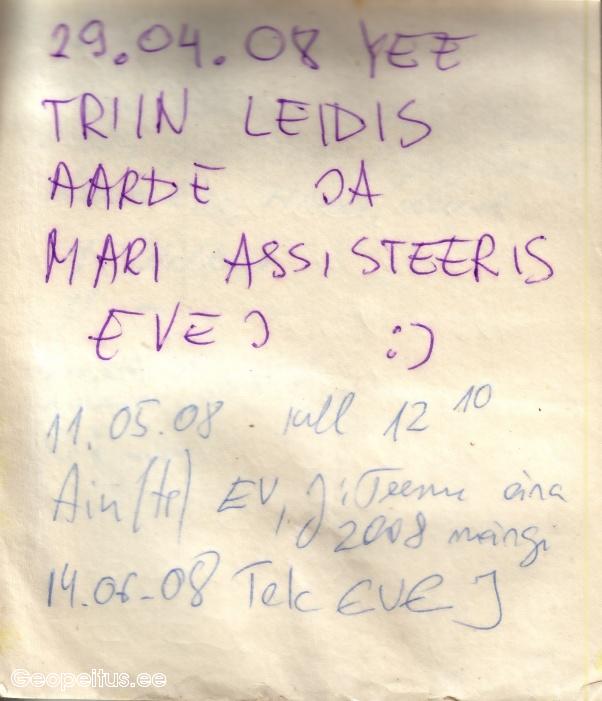 29.04.08 YEE
TRIIN LEIDIS
AARDE JA
MARI ASSISTEERIS
EVEJ :)
11.05.08 kell 12 10
Ain (te) EV, J: Teeme ära
2008 mängi
14.06-08 Tek EVE J
Geopeitus.ee